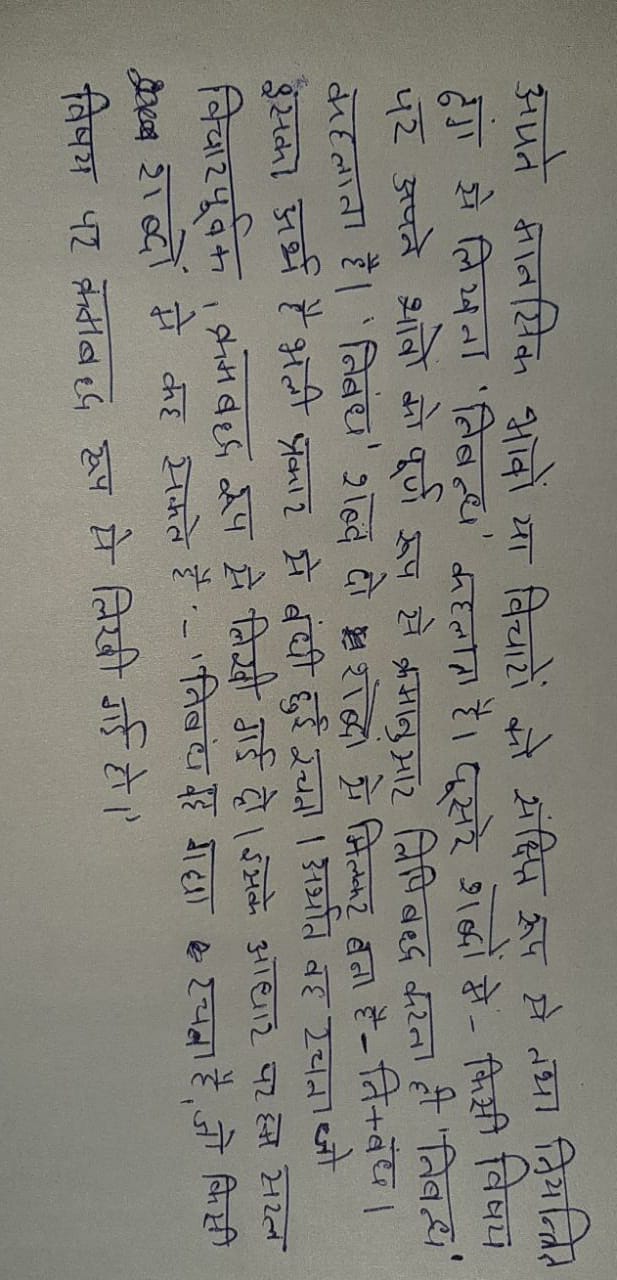 अपने मानसिक भावों या विचारों को संक्षिप्त रूप से तथा नियन्त्रित
ढंग से लिखना 'निबन्ध' कहलाता है। दूसरे शब्दों में - किसी विषय
पर अपने भावों को पूर्ण रूप से क्रमानुसार लिपिबध्द करना ही 'निबन्ध'
कहलाता है। 'निबंध' शब्द दो शब्दों से मिलकर बना है- नि+बंध।
इसका अर्थ है भली प्रकार से बंधी हुई रचना। अर्थात वह रचना जो
विचारपूर्वक, क्रमबध्द रूप से लिखी गई हो। इसके आधार पर हम सरल
शब्दों मे कह सकते है - 'निबंध वह गद्य रचना है, जो किसी
विषय पर क्रमबध्द रूप से लिखी गई हो।'